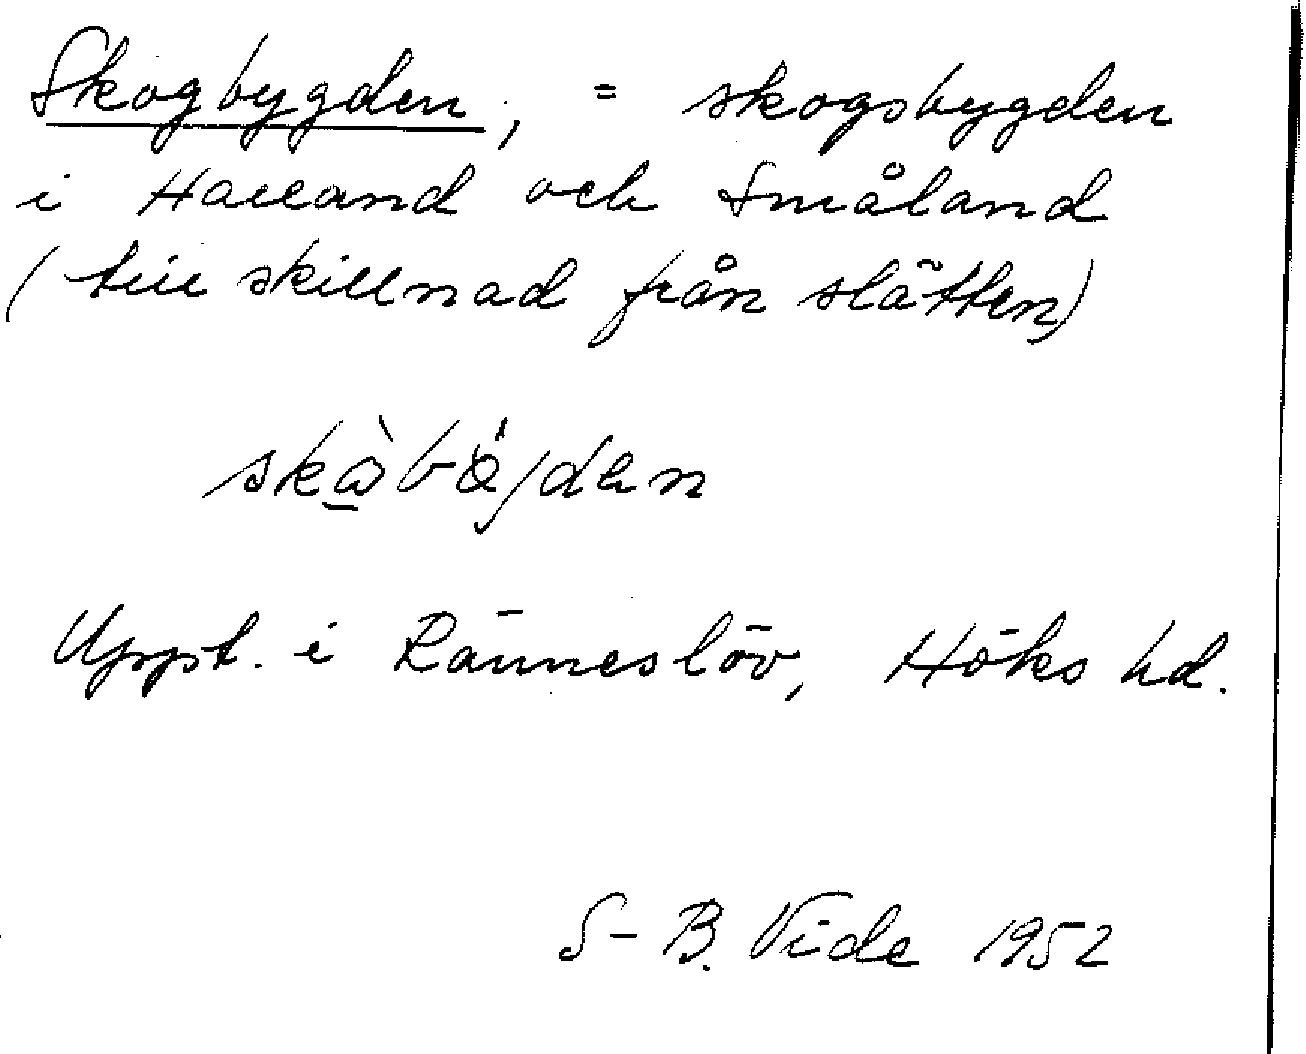 Skogbygden, = skogsbygden
i Halland och Småland
(till skillnad från slätten)
Uppt. i Ränneslöv, Höks hd.
S-B. Vide 1952